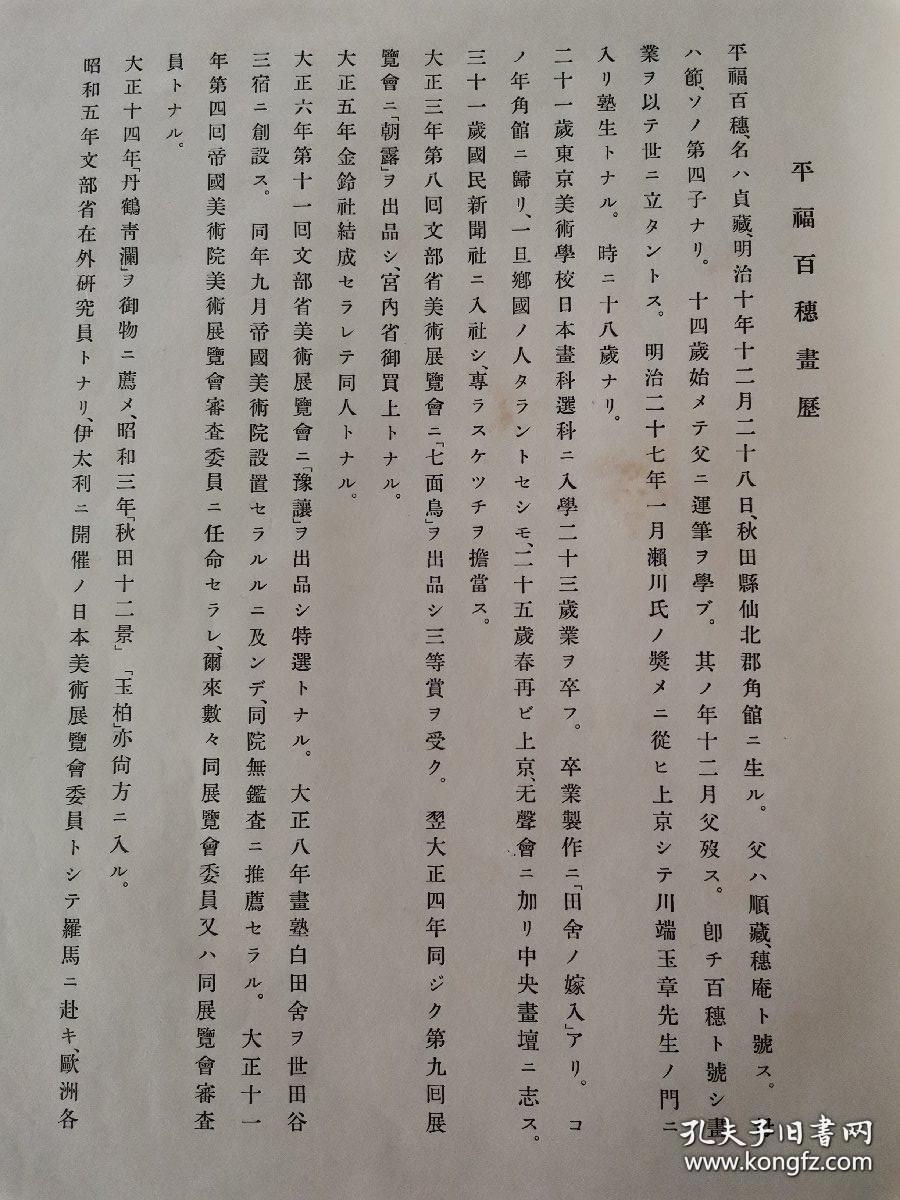 平福百穗畫歷
平福百穗、名ハ貞藏、明治十年十二月二十八日、秋田縣仙北郡角館ニ生ル。　父ハ順藏、穗庵ト號ス。
ハ節、ソノ第四子ナリ。　十四歲始メテ父ニ運筆ヲ學ブ。　其ノ年十二月父歿ス。　卽チ百穗ト號シ畫
業ヲ以テ世ニ立タントス。　明治二十七年一月瀨川氏ノ獎メニ從ヒ上京シテ川端玉章先生ノ門ニ
入リ塾生トナル。　時ニ十八歲ナリ。
二十一歲東京美術學校日本畫科選科ニ入學二十三歲業ヲ卒フ。　卒業製作ニ「田舍ノ嫁入」アリ。　コ
ノ年角館ニ歸リ、一旦鄕國ノ人タラントセシモ、二十五歲春再ビ上京、无聲會ニ加リ中央畫壇ニ志ス。
三十一歲國民新聞社ニ入社シ、專ラスケツチヲ擔當ス。
大正三年第八回文部省美術展覽會ニ「七面鳥」ヲ出品シ三等賞ヲ受ク。　翌大正四年同ジク第九回展
覽會ニ「朝露」ヲ出品シ、宮內省御買上トナル。
大正五年金鈴社結成セラレテ同人トナル。
大正六年第十一回文部省美術展覽會ニ「豫讓」ヲ出品シ特選トナル。　大正八年畫塾白田舍ヲ世田谷
三宿ニ創設ス。　同年九月帝國美術院設置セラルルニ及ンデ、同院無鑑査ニ推薦セラル。　大正十一
年第四回帝國美術院美術展覽會審査委員ニ任命セラレ、爾來數々同展覽會委員又ハ同展覽會審査
員トナル。
大正十四年「丹鶴靑瀾」ヲ御物ニ薦メ、昭和三年「秋田十二景」「玉柏」亦尙方ニ入ル。
昭和五年文部省在外硏究員トナリ、伊太利ニ開催ノ日本美術展覽會委員トシテ羅馬ニ赴キ、歐洲各
孔夫子旧书网
www.kongfz.com